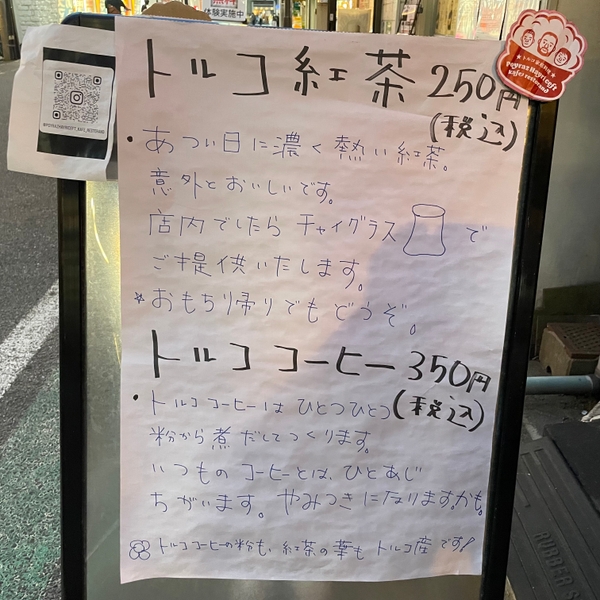 体験実施中
トルコ紅茶 250円
(税込)
・あつい日に濃く熱い紅茶。
意外とおいしいです。
店内でしたら チャイグラス で
ご提供いたします。
☆おもち帰りでもどうぞ。
トルココーヒー 350円
・トルココーヒーは ひとつひとつ (税込)
粉から煮だしてつくります。
いつものコーヒーとは、ひとあじ
ちがいます。やみつきになります。かも。
トルココーヒーの粉も、紅茶の葉も トルコ産です!